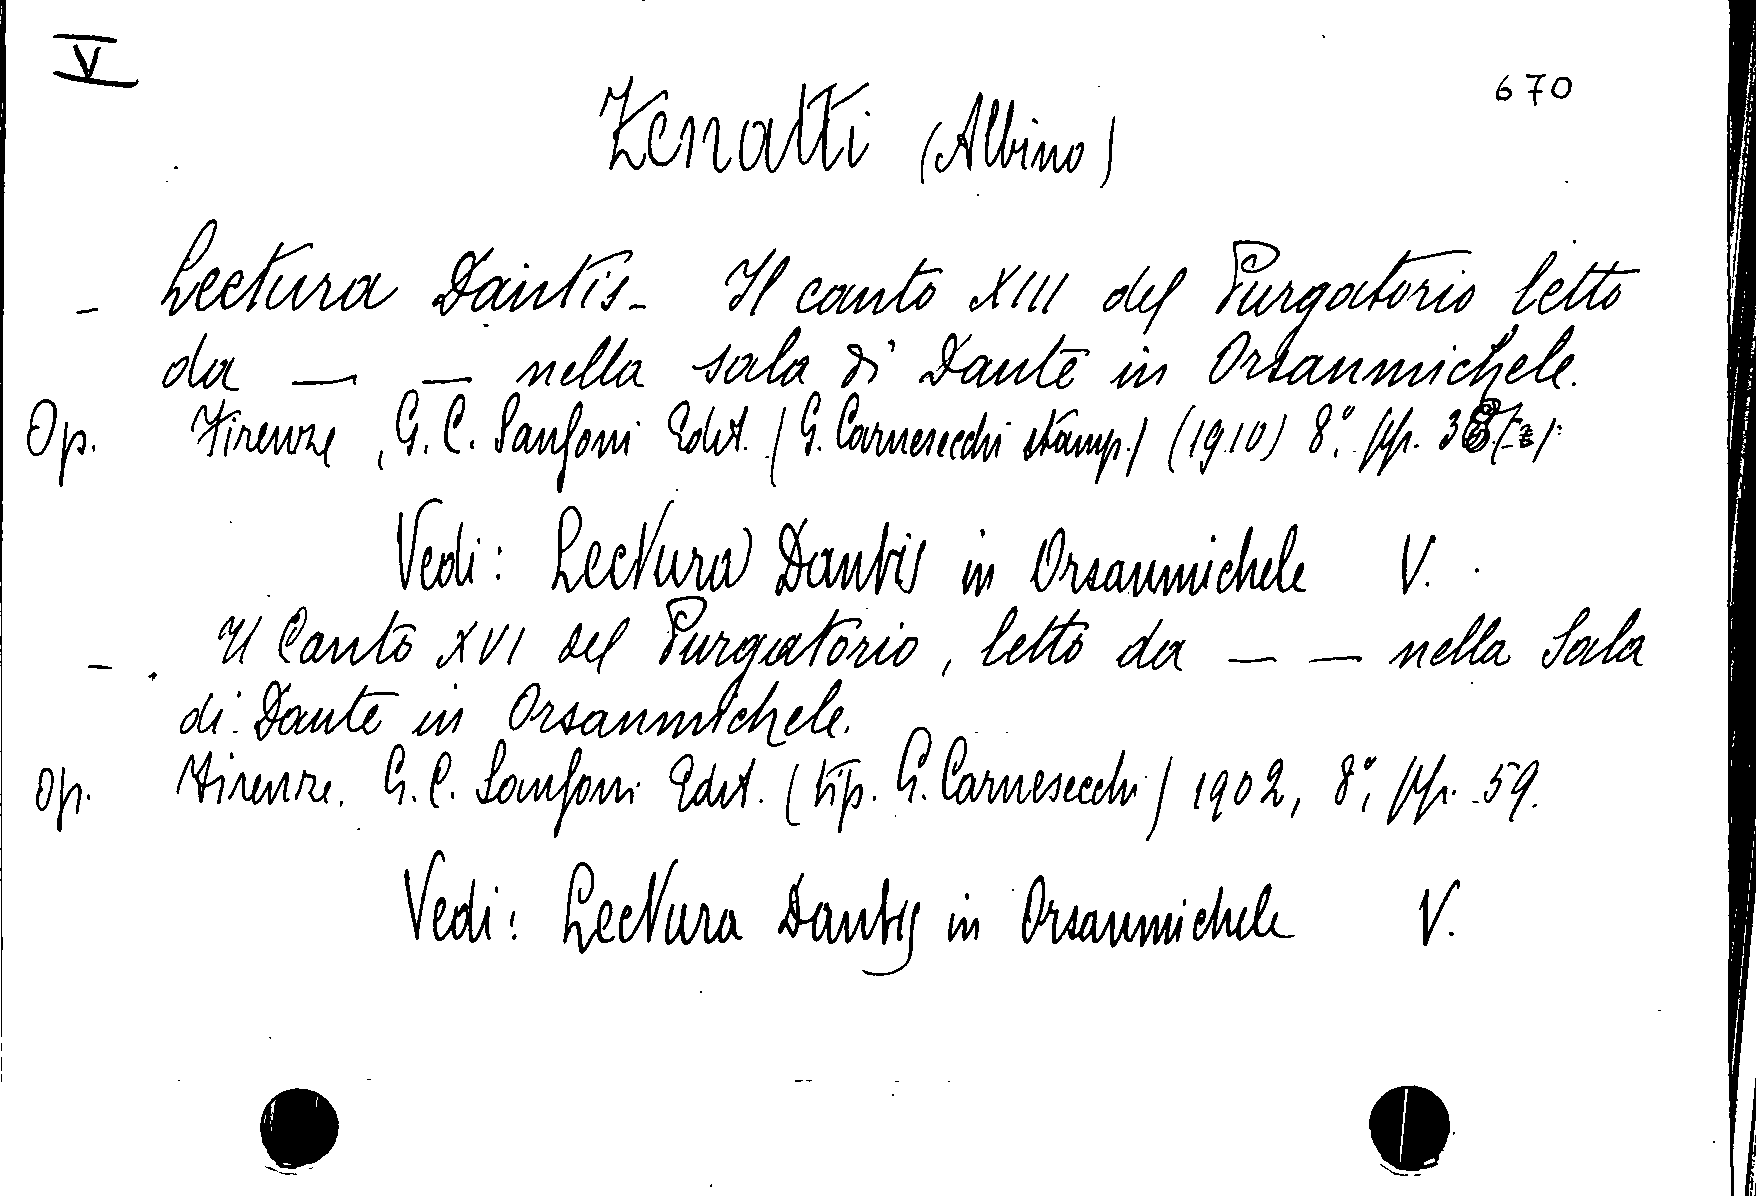 V
670
Zenatti (Albino)
- Lectura Dantis - Il canto XIII del Purgatorio letto
da — — nella sala di Dante in Orsanmichele.
Op. Firenze, G. C. Sansoni Edit. (G. Carnesecchi stamp.) (1910) 8°. pp.
Vedi: Lectura Dantis in Orsanmichele V.
- . Il Canto XVI del Purgatorio, letto da — — nella Sala
di Dante in Orsanmichele.
Op. Firenze. G. C. Sansoni Edit. (tip. G. Carnesecchi) 1902, 8°, pp. 59.
Vedi: Lectura Dantis in Orsanmichele V.